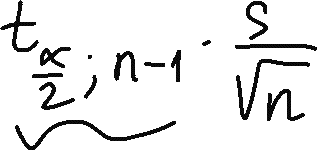 t_{\frac{\alpha}{2}; n-1} \cdot \frac{s}{\sqrt{n}}